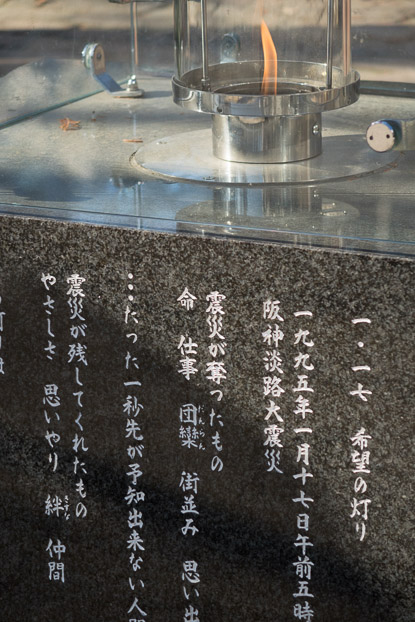 一・一七 希望の灯り
一九九五年一月十七日午前五時
阪神淡路大震災
震災が奪ったもの
命 仕事 団欒 街並み 思い出
…たった一秒先が予知出来ない人間
震災が残してくれたもの
やさしさ 思いやり 絆 仲間